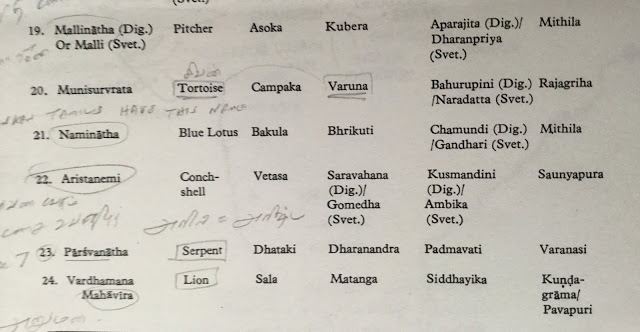 19. Mallinātha (Dig.) Pitcher Asoka Kubera Aparajita (Dig.)/ Mithila
Or Malli (Svet.) Dharanpriya
(Svet.)
20. Munisurvrata Tortoise Campaka Varuna Bahurupini (Dig.) Rajagriha
/Naradatta (Svet.)
TAMILS HAVE THIS NAME
21. Naminātha Blue Lotus Bakula Bhrikuti Chamundi (Dig.) Mithila
/Gandhari (Svet.)
22. Aristanemi Conch- Vetasa Saravahana Kusmandini Saunyapura
shell (Dig.)/ (Dig.)/
Gomedha Ambika
(Svet.) (Svet.)
23. Pārśvanātha Serpent Dhataki Dharanandra Padmavati Varanasi
24. Vardhamana Lion Sala Matanga Siddhayika Kuṇḍa-
Mahāvira grāma/
Pavapuri